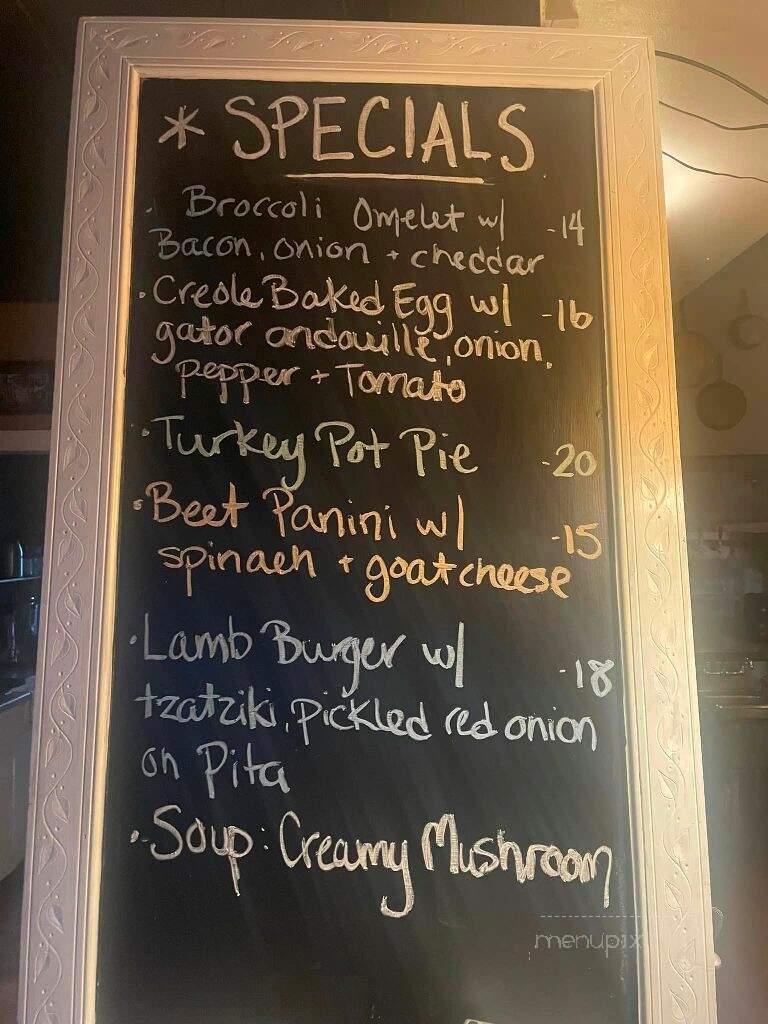 * SPECIALS
. Broccoli Omelet w/ -14
Bacon, onion + cheddar
. Creole Baked Egg w/ -16
gator andouille, onion,
pepper + Tomato
. Turkey Pot Pie -20
. Beet Panini w/ -15
spinach + goat cheese
. Lamb Burger w/ -18
tzatziki, pickled red onion
on Pita
. Soup: Creamy Mushroom
menupix